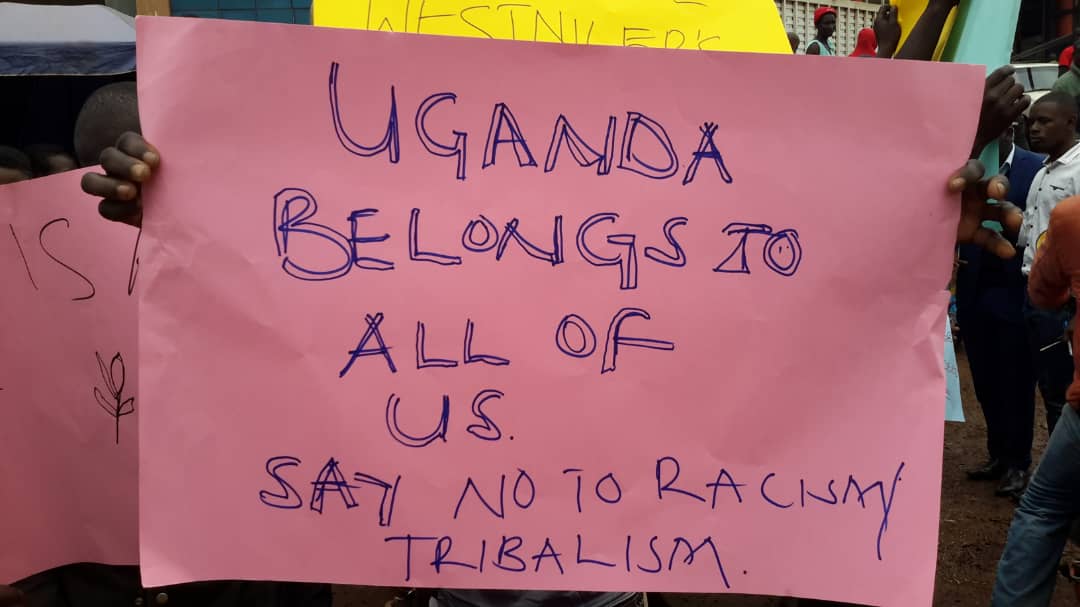 WESTNILER'S
UGANDA
BELONGS TO
ALL OF
US.
SAY NO TO RACISM/
TRIBALISM.
IS